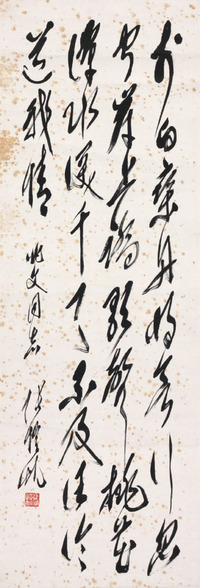 李白乘舟将欲行忽
闻岸上踏歌声桃花
潭水深千尺不及汪伦
送我情
文同志